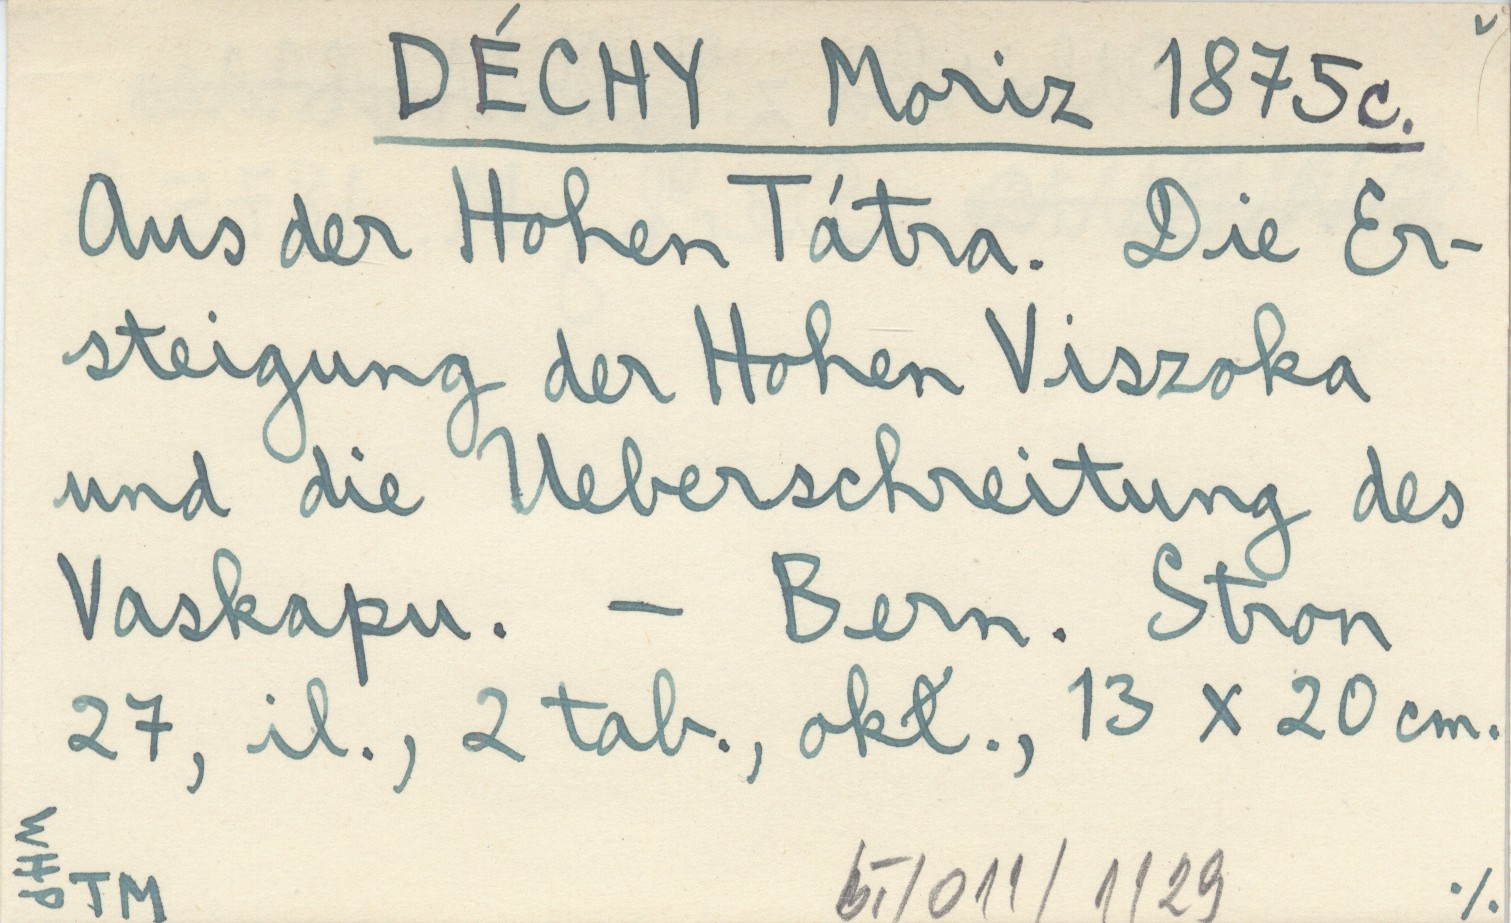 DÉCHY Moriz 1875c.
Aus der Hohen Tátra. Die Er-
steigung der Hohen Viszoka
und die Ueberschreitung des
Vaskapu. – Bern. Stron
27, il., 2 tab., okł., 13 x 20 cm.
WHP
TM
/011/ 1/29
./.